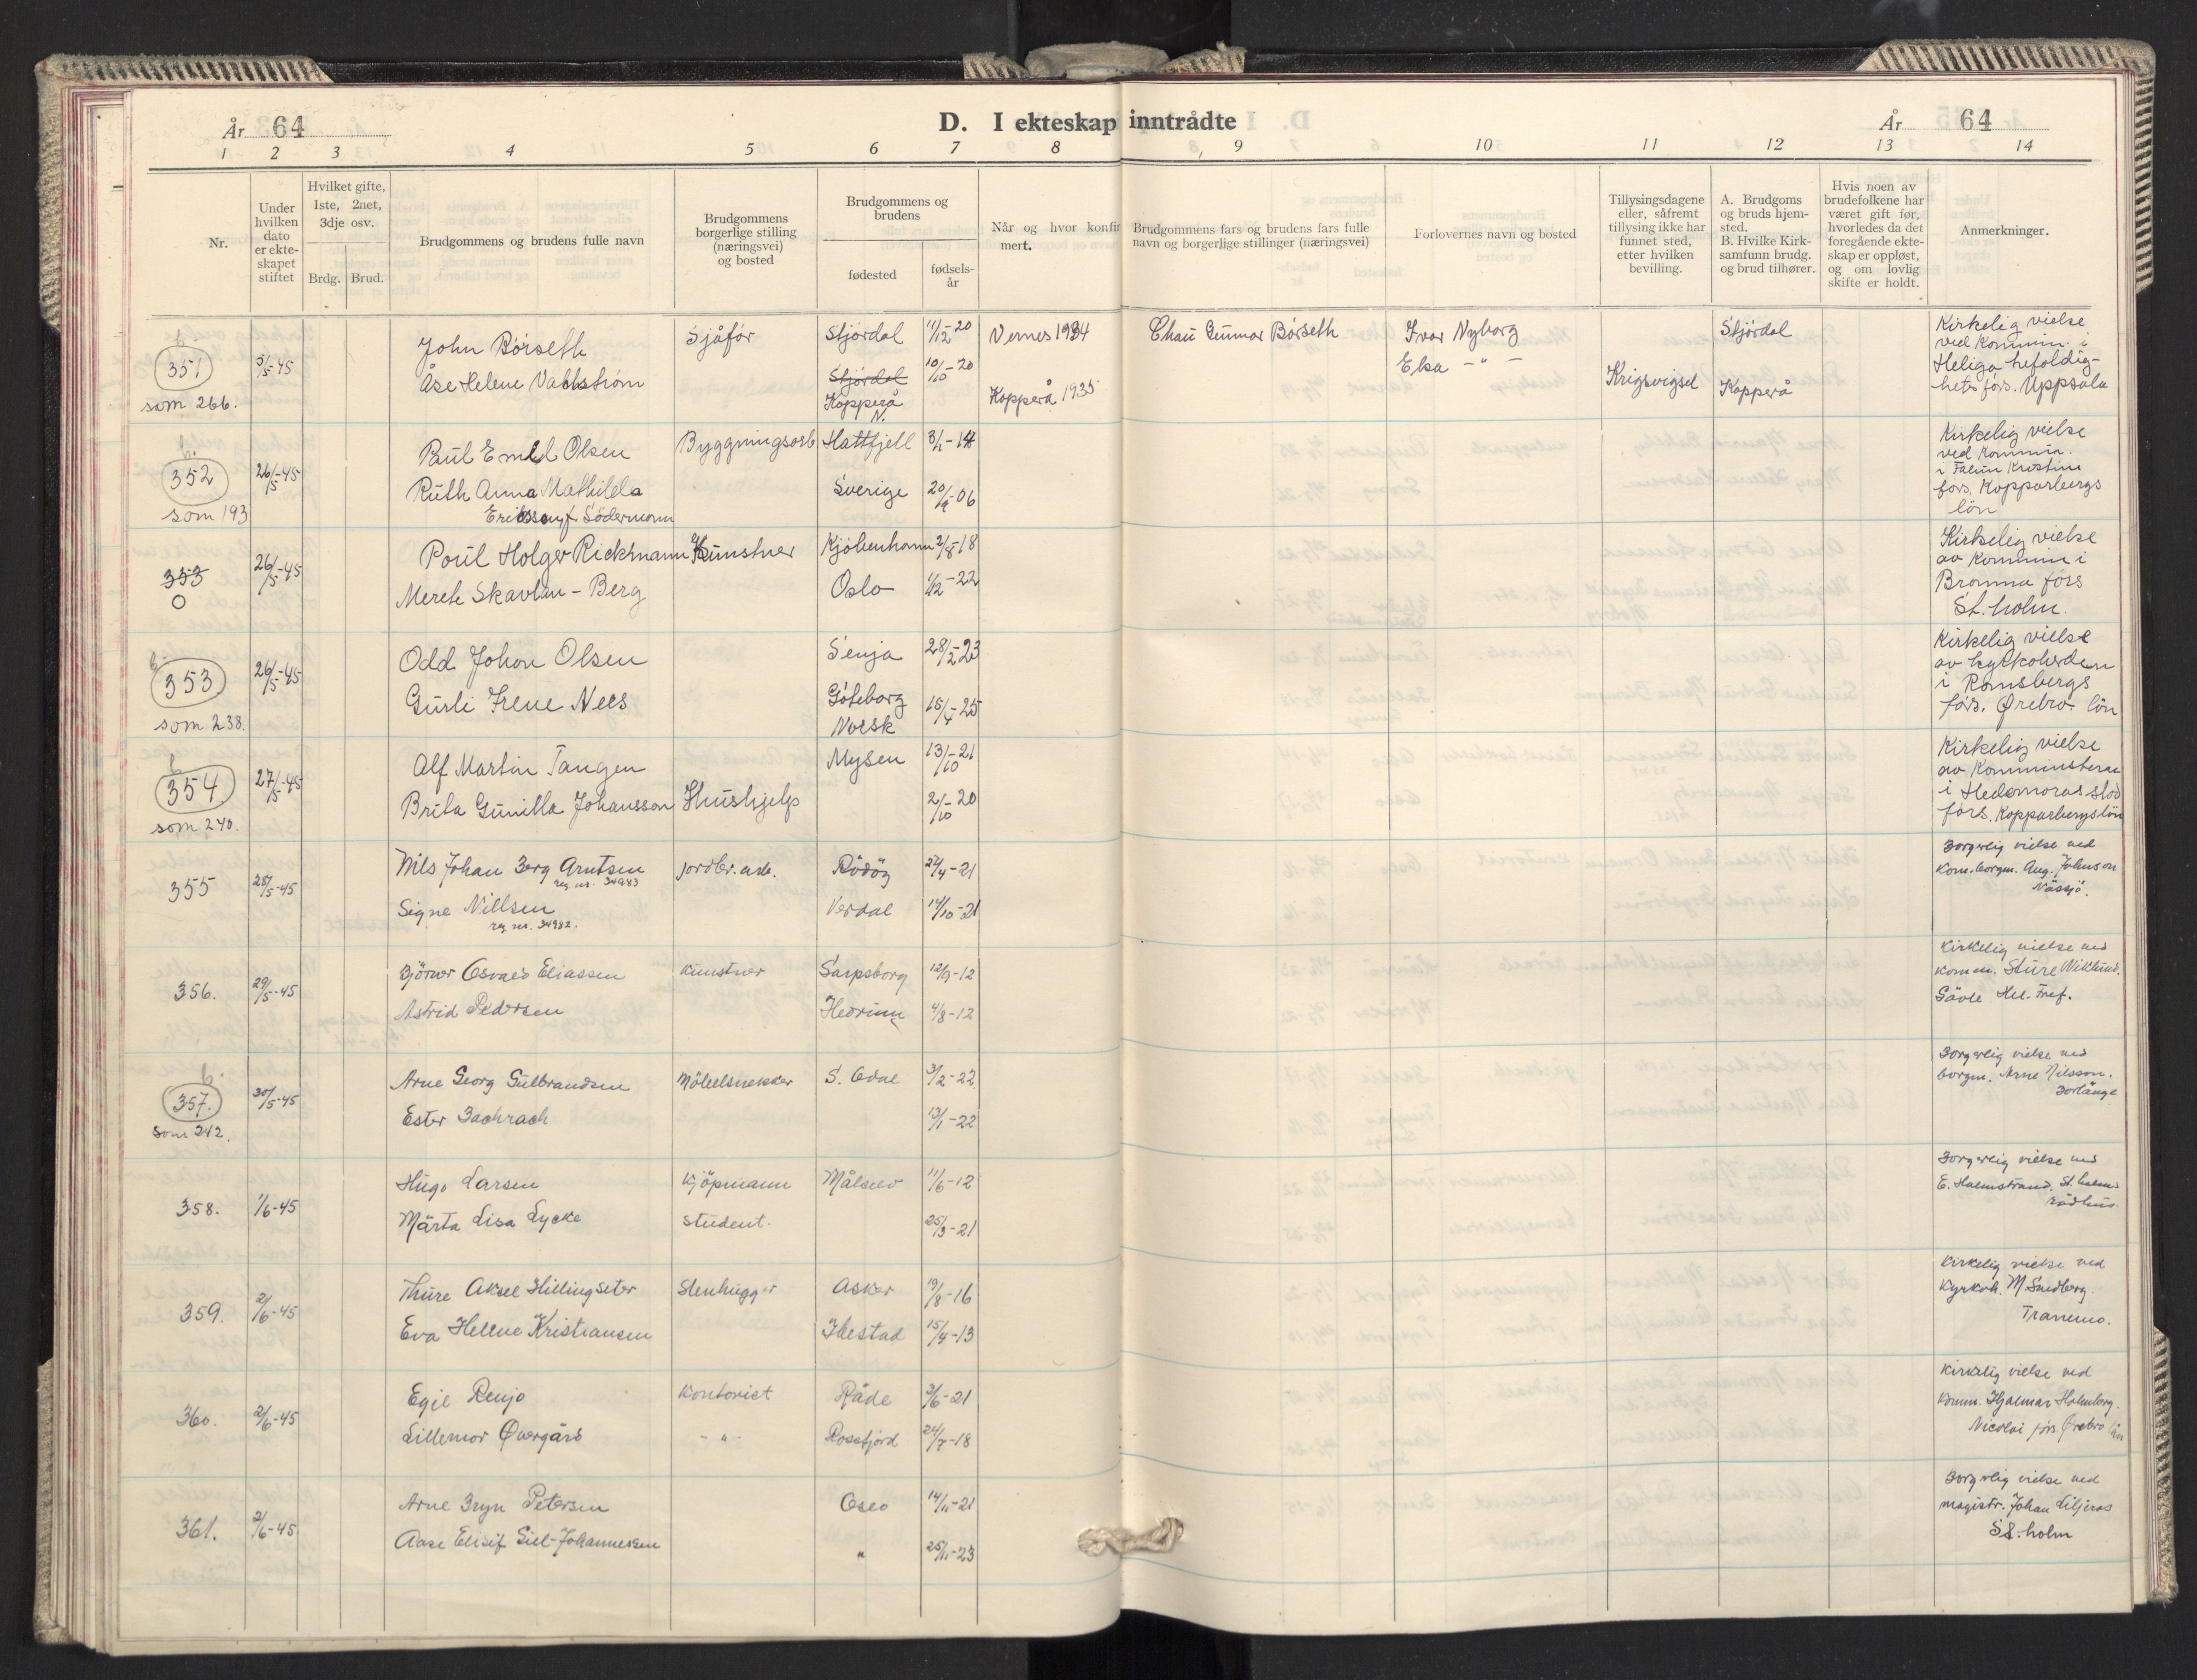 År 64
D. I ekteskap inntrådte
År 64
1 2 3 4 5 6 7 8 9 10 11 12 13 14
Nr.
Under hvilken dato er ekteskapet stiftet
Hvilket gifte, 1ste, 2net, 3dje osv.
Brdg. Brud.
Brudgommens og brudens fulle navn
Brudgommens borgerlige stilling (næringsvei) og bosted
Brudgommens og brudens
fødested
fødsels-år
Når og hvor konfirmert.
Brudgommens fars og brudens fars fulle navn og borgerlige stillinger (næringsvei)
Forlovernes navn og bosted
Tillysingsdagene eller, såfremt tillysing ikke har funnet sted, etter hvilken bevilling.
A. Brudgoms og bruds hjemsted.
B. Hvilke Kirksamfunn brudg. og brud tilhører.
Hvis noen av brudefolkene har været gift før, hvorledes da det foregående ekteskap er oppløst, og om lovlig skifte er holdt.
Anmerkninger.
351 5/5-45 John Börseth Sjåför Stjördal 11/12-20 Vernes 1934 Gunnar Börseth Ivar Nyborg Stjördal
Åse Helene Stjördal 10/10-20 Elsa - " - Krigsvigsel
som 266. Kopperå N. Kopperå 1935 Kopperå
Kirkelig vielse
ved Kommin. i
förs. Uppsala
352 26/5-45 Paul Emil Olsen Hattfjell
Ruth Anna Mathilda Sverige 20/9-06
som 193 Södermann
Kirkelig vielse
ved Kommin.
i Falun Kristine
förs. Kopparbergs
län
353 26/5-45 Poul Holger Rickmann Kunstner Kjöbenhavn 2/8-18
O Merete Skavlan-Berg Oslo 1/12-22
Kirkelig vielse
av Kommin i
Bromma förs
St. holm.
353 26/5-45 Odd Johan Olsen Senja 28/2-23
Gurli Irene Nees Göteborg
som 238. Norsk
Kirkelig vielse
av kyrkoherden
i Ramsbergs
förs. Ørebro län
354 27/5-45 Alf Martin Tangen Mysen 13/10-21
Brita Gunilla Johansson Hushjelp 2/10-20
som 240.
Kirkelig vielse
av Komministeren
i Hedemoras stad
förs. Kopparbergs län
355 28/5-45 Nils Johan Borg Arntsen jordbr. arb. Rödöy 24/4-21
reg nr. 34983
Signe Nillsen Verdal 14/10-21
reg nr. 34982.
Borgerlig vielse ved
Kom. borgm. Aug. Johnson
Nässjö.
356. 29/5-45 Björner Osvald Eliassen Kunstner Sarpsborg 12/9-12
Astrid Pedersen Hedrum 4/8-12
Kirkelig vielse ved
komm. Sture Wiklund.
Gävle Hel. Tref.
357. 30/5-45 Arne Georg Gulbrandsen Möbelsnekker S. Odal 3/2-22
Ester Bachrach 13/1-22
som 242.
Borgerlig vielse ved
borgm. Arne Nilsson.
Borlänge
358. 1/6-45 Hugo Larsen Kjöpmann Målselv 11/6-12
Märta Lisa Lycke student. 25/3-21
Borgerlig vielse ved
E. Holmstrand. St. holms
rådhus
359. 2/6-45 Thure Aksel Hillingseter Stenhugger Asker 19/8-16
Eva Helene Kristiansen Ibestad 15/4-13
Kirkelig vielse ved
Kyrkoh. M Sundberg.
Tranemo.
360. 2/6-45 Egil Renjo Kontorist Råde 3/6-21
Lillemor Øvergård - " - Rossfjord 24/7-18
Kirkelig vielse ved
komm. Hjalmar Holmberg.
Nicolai förs. Ørebro län
361. 2/6-45 Arne Bryn Petersen Oslo 14/11-21
Aase Elisif Siel-Johannessen " 25/11-23
Borgerlig vielse ved
magistr. Johan Liljeros
St. holm